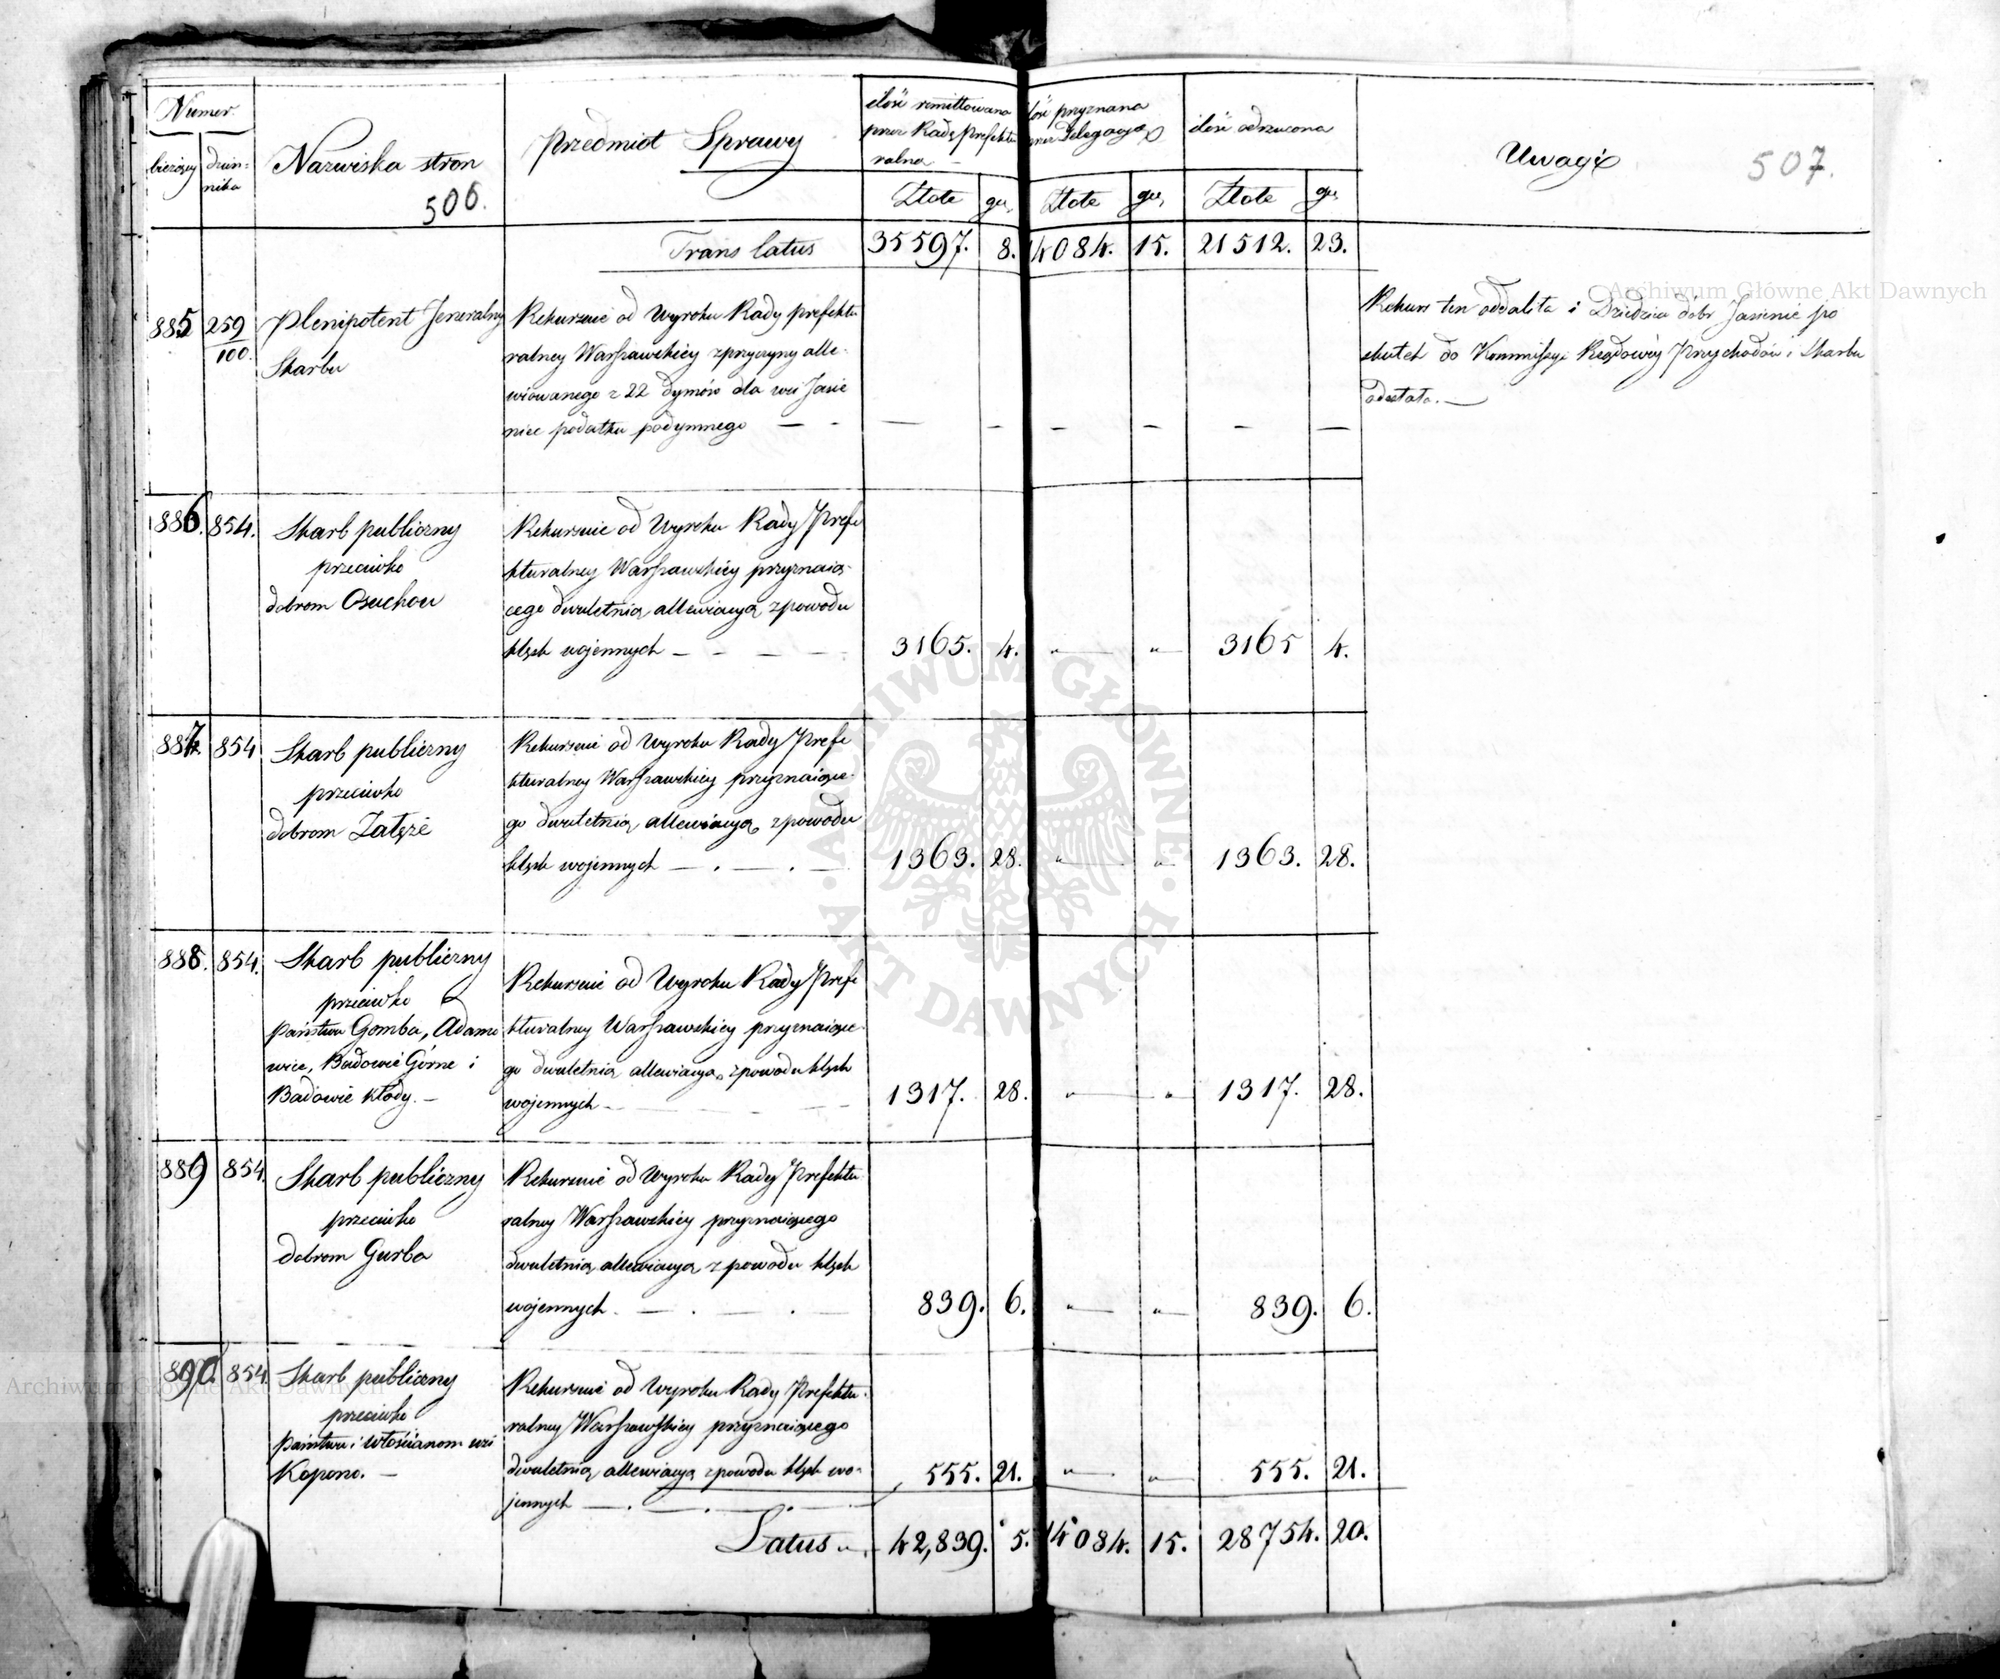 Numer
bieżący
dzien-
nika
Nazwiska stron
506.
Przedmiot Sprawy
ilość remittowana
przez Radę Prefektu
ralną
Złote gr.
ilość przyznana
przez Delegacyą
Złote gr.
ilość odrzucona
Złote gr.
Uwagi
507.
Trans latus 35597. 8. 14084. 15. 21512. 23.
885 259/100. Plenipotent Jeneralny
Skarbu
Rekursuie od Wyroku Rady prefektu
ralney Warszawskiey z przyczyny alle-
wiowanego z 22 dymów dla wsi Jasie
niec podatku podymnego — -
— - — - — —
Rekurs ten oddaliła i Dziedzica dóbr Jasienie po
skutek do Kommissyi Rządowey Przychodów i Skarbu
odesłała. —
886. 854. Skarb publiczny
przeciwko
dobrom Osuchow
Rekursuie od Wyroku Rady Prefe
kturalney Warszawskiey przyznaią-
cego dwuletnią allewiacyą z powodu
klęsk wojennych — - — —
3165. 4. " — " 3165 4.
887. 854 Skarb publiczny
przeciwko
dobrom Załęże
Rekursuie od Wyroku Rady Prefe
kturalney Warszawskiey przyznaiące-
go dwuletnią allewiacyą z powodu
klęsk wojennych — . — . —
1363. 28. " — " 1363. 28.
888. 854. Skarb publiczny
przeciwko
Państwu Gomba, Adamo
wice, Badowie Górne i
Badowie Kłody. —
Rekursuie od Wyroku Rady Prefe
kturalney Warszawskiey przyznaiące-
go dwuletnią allewiacyą z powodu klęsk
wojennych —
1317. 28. " — " 1317. 28.
889 854. Skarb publiczny
przeciwko
dobrom Gurba
Rekursuie od Wyroku Rady Prefektu
ralney Warszawskiey przyznaiącego
dwuletnią allewiacyą z powodu klęsk
wojennych. — . — . —
839. 6. " — " 839. 6.
890. 854 Skarb publiczny
przeciwko
Państwu i włościanom wsi
Kopono. —
Rekursuie od Wyroku Rady Prefektu-
ralney Warszawskiey przyznaiącego
dwuletnią allewiacyą z powodu klęsk wo-
jennych — . — . —
555. 21. " — " 555. 21.
Latus 42,839. 5. 14084. 15. 28754. 20.
Archiwum Główne Akt Dawnych
ARCHIWUM GŁÓWNE · AKT DAWNYCH ·
Archiwum Główne Akt Dawnych